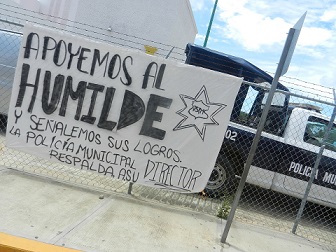 APOYEMOS AL
HUMILDE
Y SEÑALEMOS SUS LOGROS.
LA POLICÍA MUNICIPAL
RESPALDA A SU DIRECTOR
02
POLICIA MU